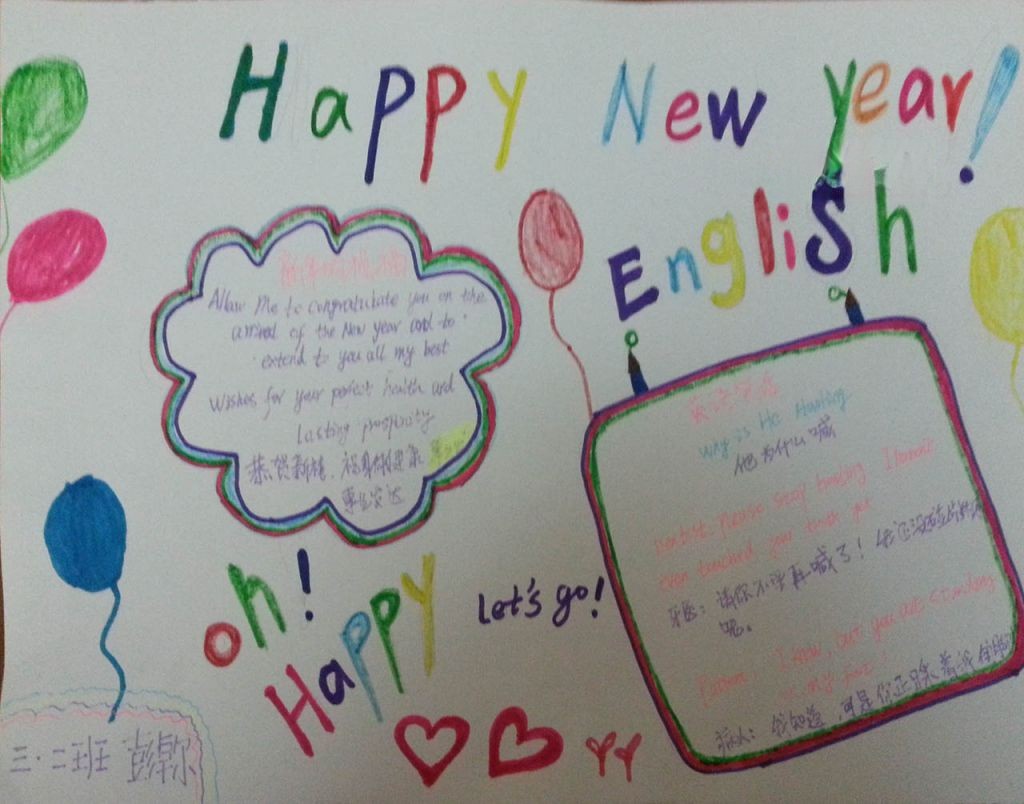 Happy New year!
English
Allow Me to congratulate you on the
arrival of the New year and to
extend to you all my best
Wishes for your perfect health and
Lasting prosperity
恭贺新禧、祝身体健康
事业发达
英语笑话
Why is He Howling
他为什么喊
Dentist: Please stop howling. I haven't
even touched you tooth yet
牙医：请你不要再喊了！我还没碰你的牙
呢。
I know, but you are standing
Patient on my foot!
病人：我知道，可是你正踩着我的脚
oh!
Happy
Let's go!
三·二班